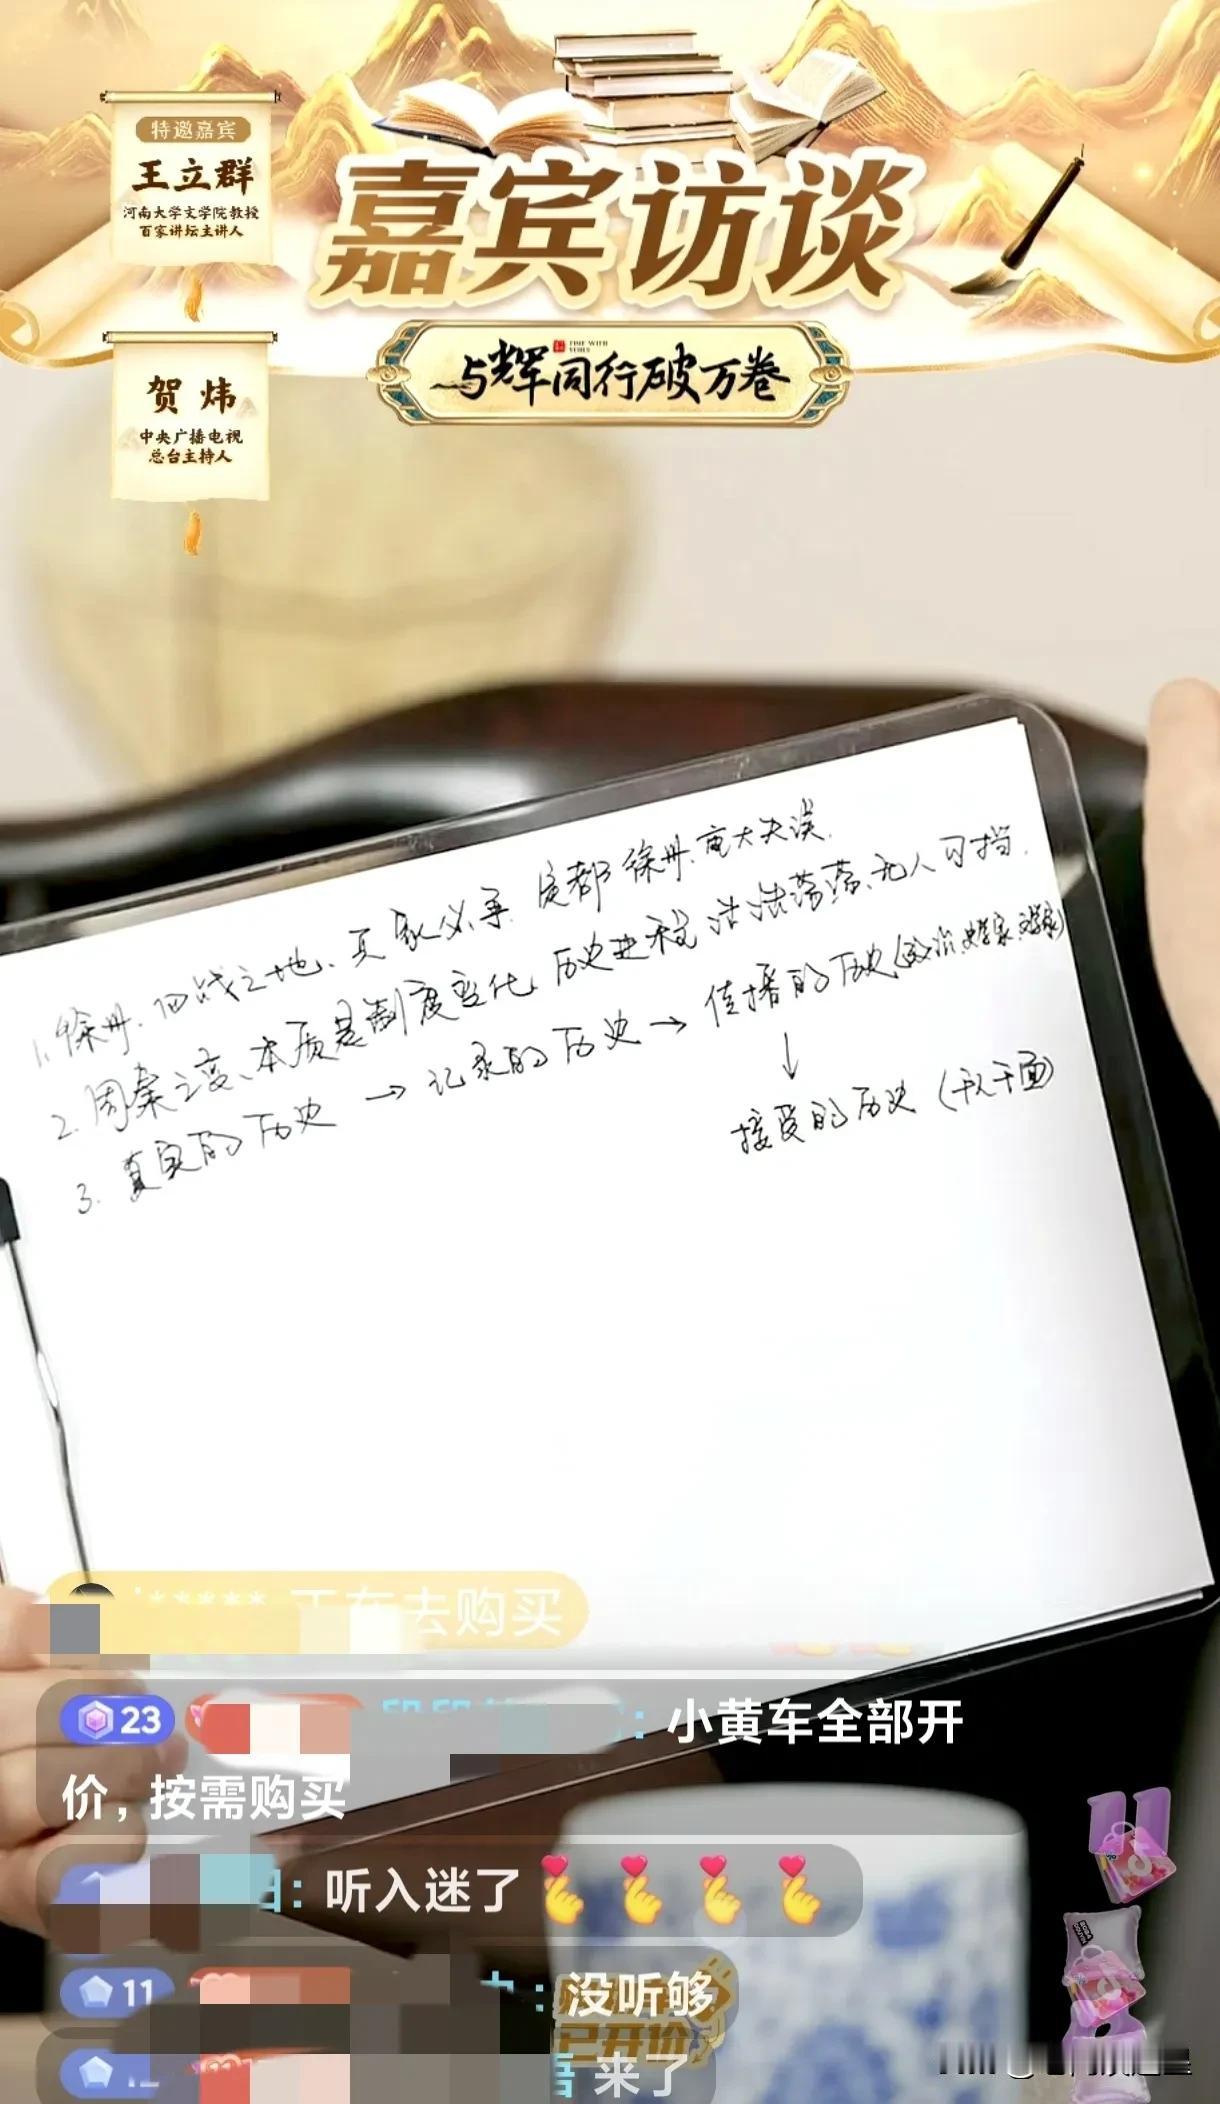 特邀嘉宾
王立群
河南大学文学院教授
百家讲坛主讲人
嘉宾访谈
TIME WITH YUHUI
与辉同行破万卷
贺炜
中央广播电视
总台主持人
1. 徐州、四战之地、兵家必争、定都徐州、重大失误.
2. 周秦之变、本质是制度变化、历史进程浩浩荡荡、无人可挡.
3. 真实的历史 → 记录的历史 → 传播的历史(政治、史学家、文学家)
↓
接受的历史(千人千面)
正在去购买
23 : 小黄车全部开
价，按需购买
: 听入迷了
11 : 没听够
已开价
来了